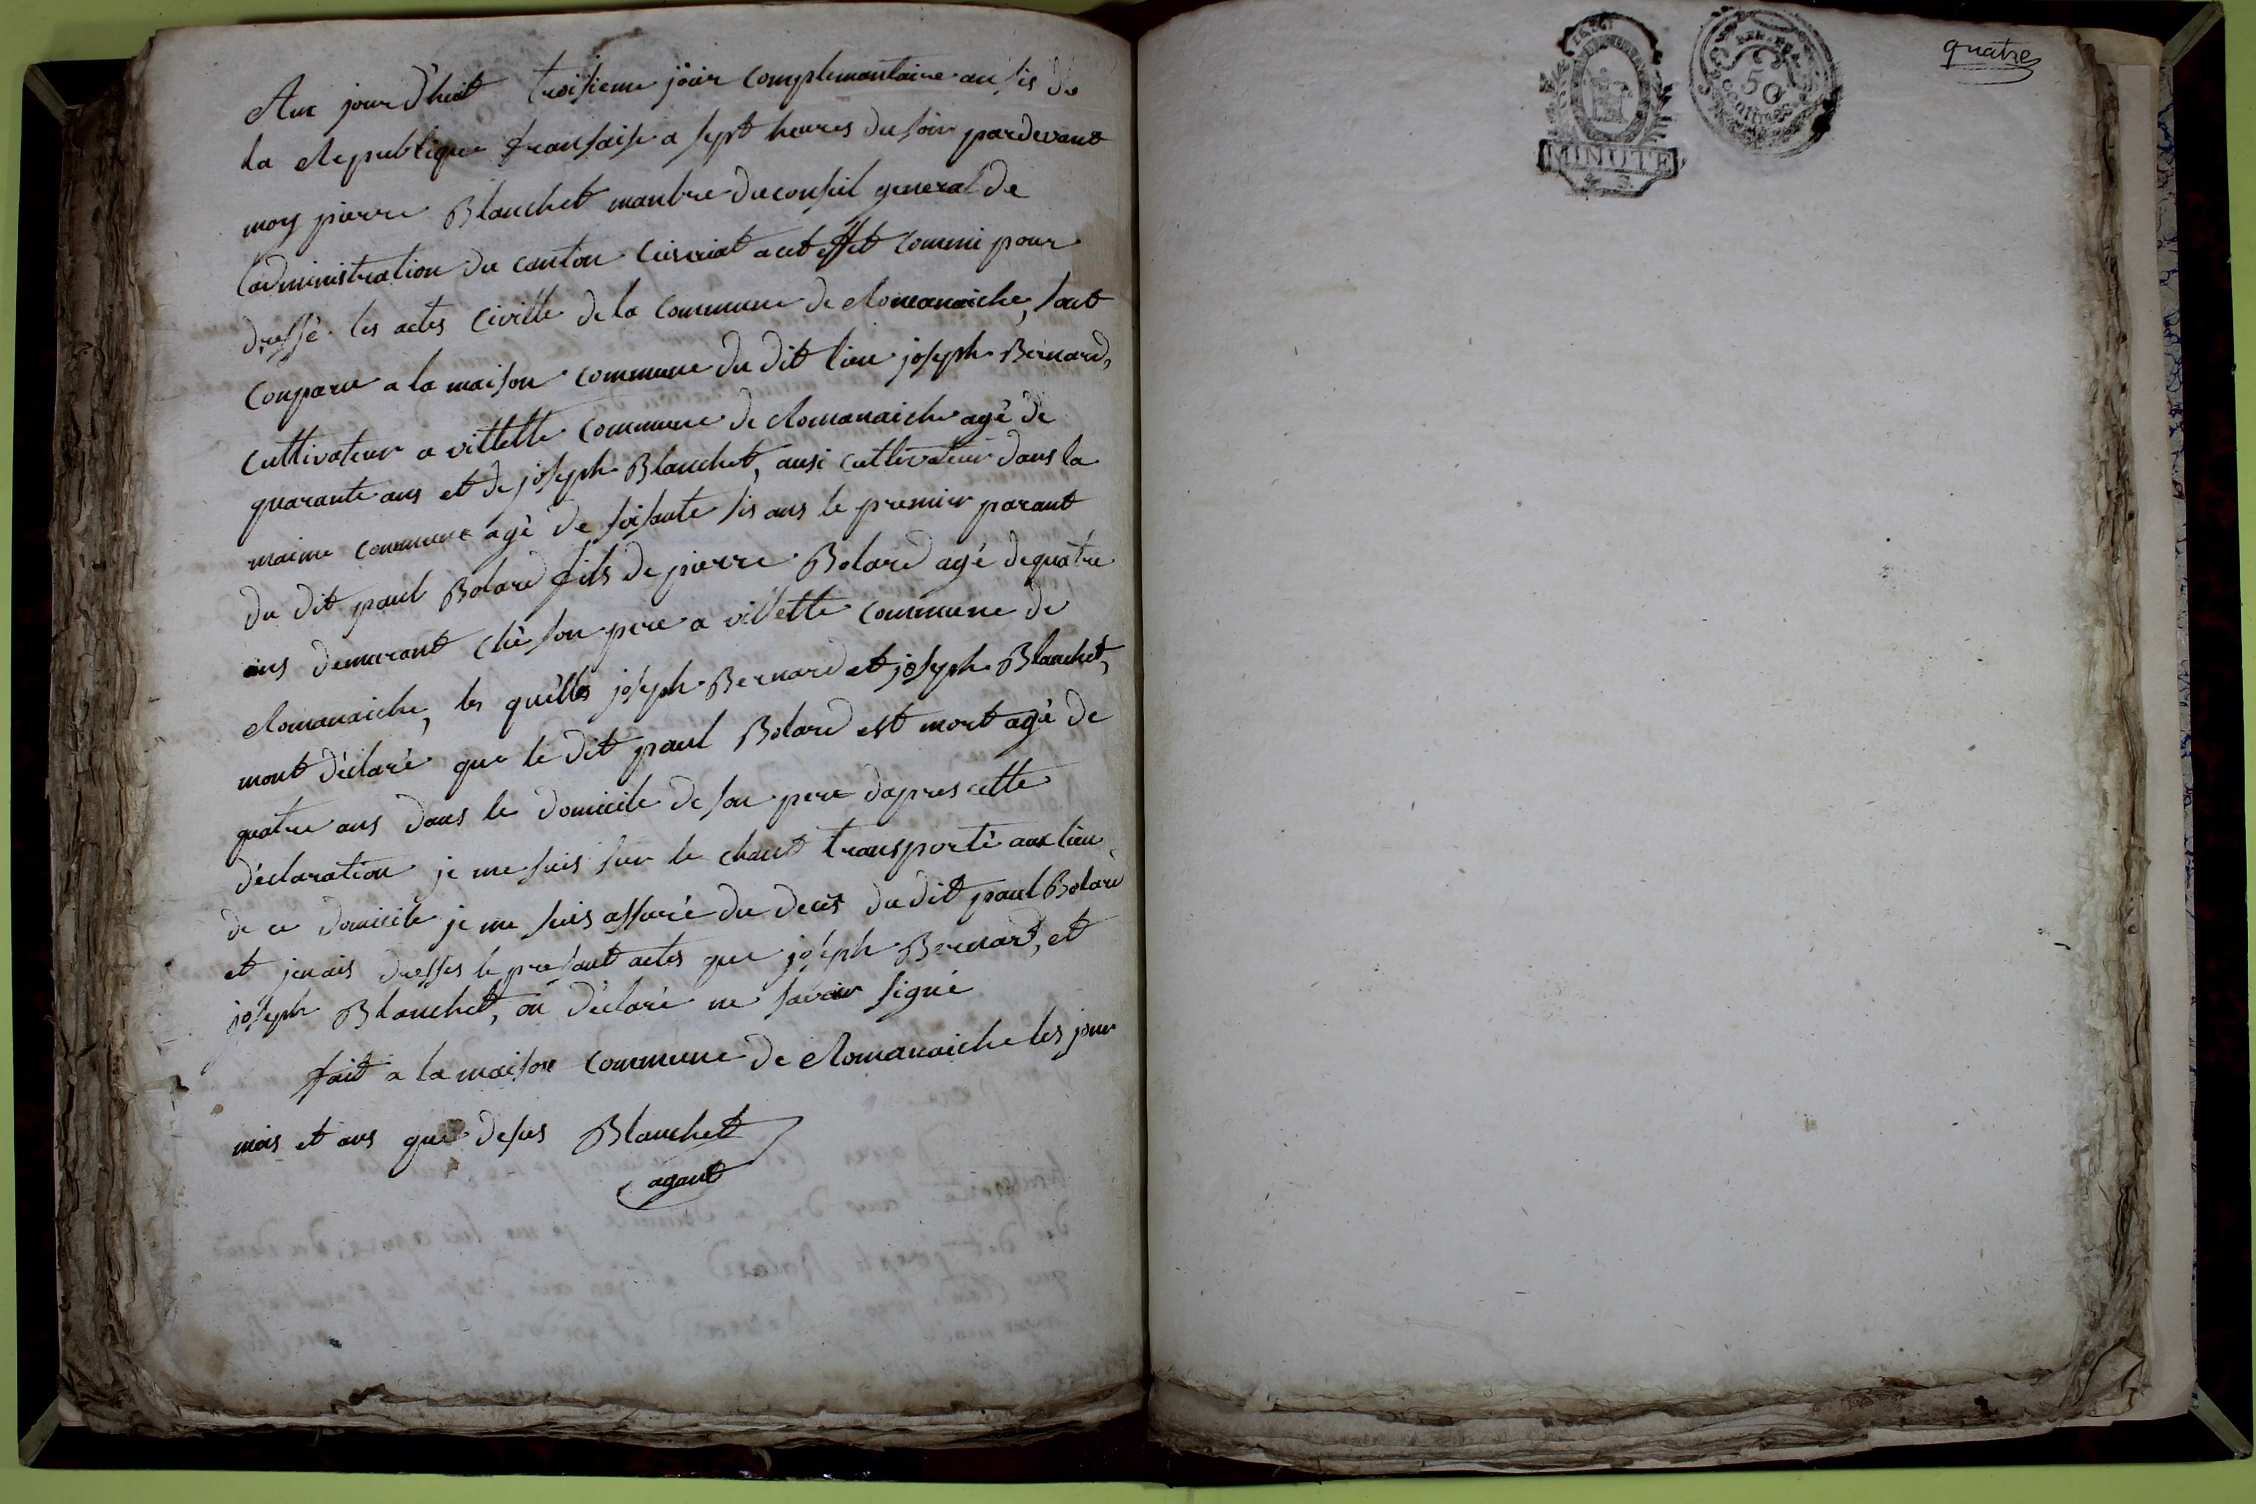 Aux jour d'huit troisieme jour complemantaire an sis de
la Republique fransaise a sept heures du soir pardevant
moy pierre Blanchet manbre du conseil general de
l'administration du canton Ciseriat a cet effet commi pour
dressé les actes civille de la commune de Romanaiche, sont
conparu a la maison commune du dit lieu joseph Bernard,
cultivateur a villette commune de Romanaiche agé de
quarante ans et de joseph Blanchet, ausi cultivateur dans la
maime commune agé de soisante sis ans le premier parant
du dit paul Bolard fils de pierre Bolard agé de quatre
ans demurant ché son pere a villette commune de
Romanaiche, les quélles joseph Bernard et joseph Blanchet,
mont déclaré que le dit paul Bolard est mort agé de
quatre ans dans le domicile de son pere dapres cette
déclaration je me suis sur le chant transporté aux lieu
de ce domicile je me suis assuré du deces du dit paul Bolard
et jenais dresses le presant actes que joseph Bernard, et
joseph Blanchet, on déclaré ne savoir signé
fait a la maison commune de Romanaiche les jour
mois et ans que desus Blanchet
agant
quatre
MINUTE
50
centimes